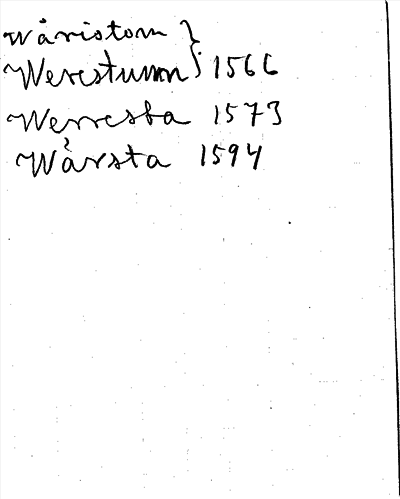 Wåristom }
Werestumm } 1566
Werresta 1573
Wårsta 1594